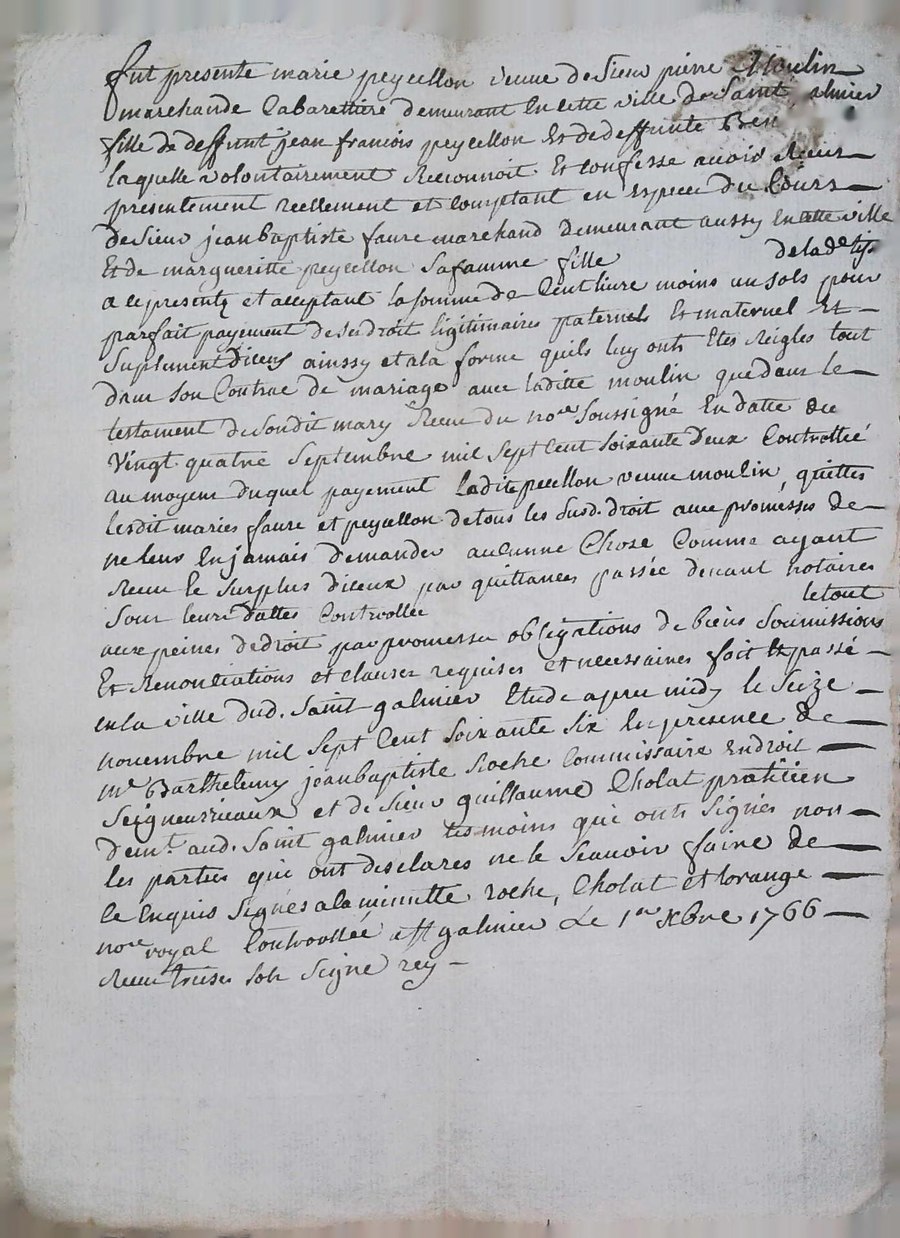 fut presente marie peycellon veuve de Sieur pierre Moulin
marchande Cabarettiere demeurant En cette ville de Saint galmier
fille de deffunt jean francois peycellon Et de deffunte
laquelle volontairement Reconnoit Et confesse avoir Receu
presentement reellement et comptant en Especes du Cours
de Sieur jean baptiste faure marchand demeurant aussy En cette ville
Et de margueritte peycellon Sa famme fille de la de
a ce presente et acceptant la somme de Cent livre moins un sols pour
parfait payement de ses droit legitimaires paternels Et maternel Et
Suplement diceux ainssy et a la forme quils luy onts Etes Reigles tout
dans son Contrac de mariage avec laditte moulin que dans le
testament de Son dit mary Receu du nore Soussigné En datte du
Vingt quatre Septembre mil Sept Cent Soixante deux Controllée
au moyen duquel payement Ladite pecellon veuve moulin, quittes
lesdit maries faure et peycellon de tous les Susd. droit avec promesses de
ne leur En jamais demander aucunne Chose Comme ayant
Receu le Surplus diceux par quittances passée devant notaires
Sour leurs dattes Controllée le tout
aux peines de droit par promesse obligations de biens Soumissions
Et Renontiations et clauses requises et necessaires fait Et passé
en la ville dud. Saint galmier Etude apres midy le Seize
novembre mil Sept Cent Soixante Six En presence de
me Barthelemy jean baptiste Roche Commissaire En droit
Seigneurieaux et de Sieur guillaume Cholat pratitien
demt. aud. Saint galmier tesmoins qui onts Signés non
les parties qui ont desclares ne le Scavoir faire de
ce Enquis Signés a la minutte roche, Cholat et Lorange
nore royal Controollée a St galmier Le 1er Xbre 1766
Receu treise sols Signe rey